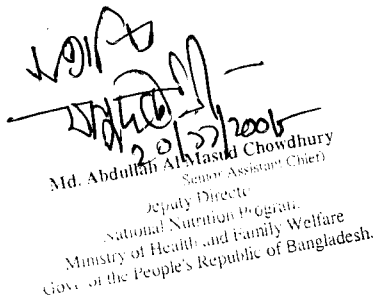 Md. Abdullah Al Masud Chowdhury
Senior Assistant Chief)
Deputy Directo
National Nutrition Program.
Ministry of Health and Family Welfare
Govt. of the People's Republic of Bangladesh.